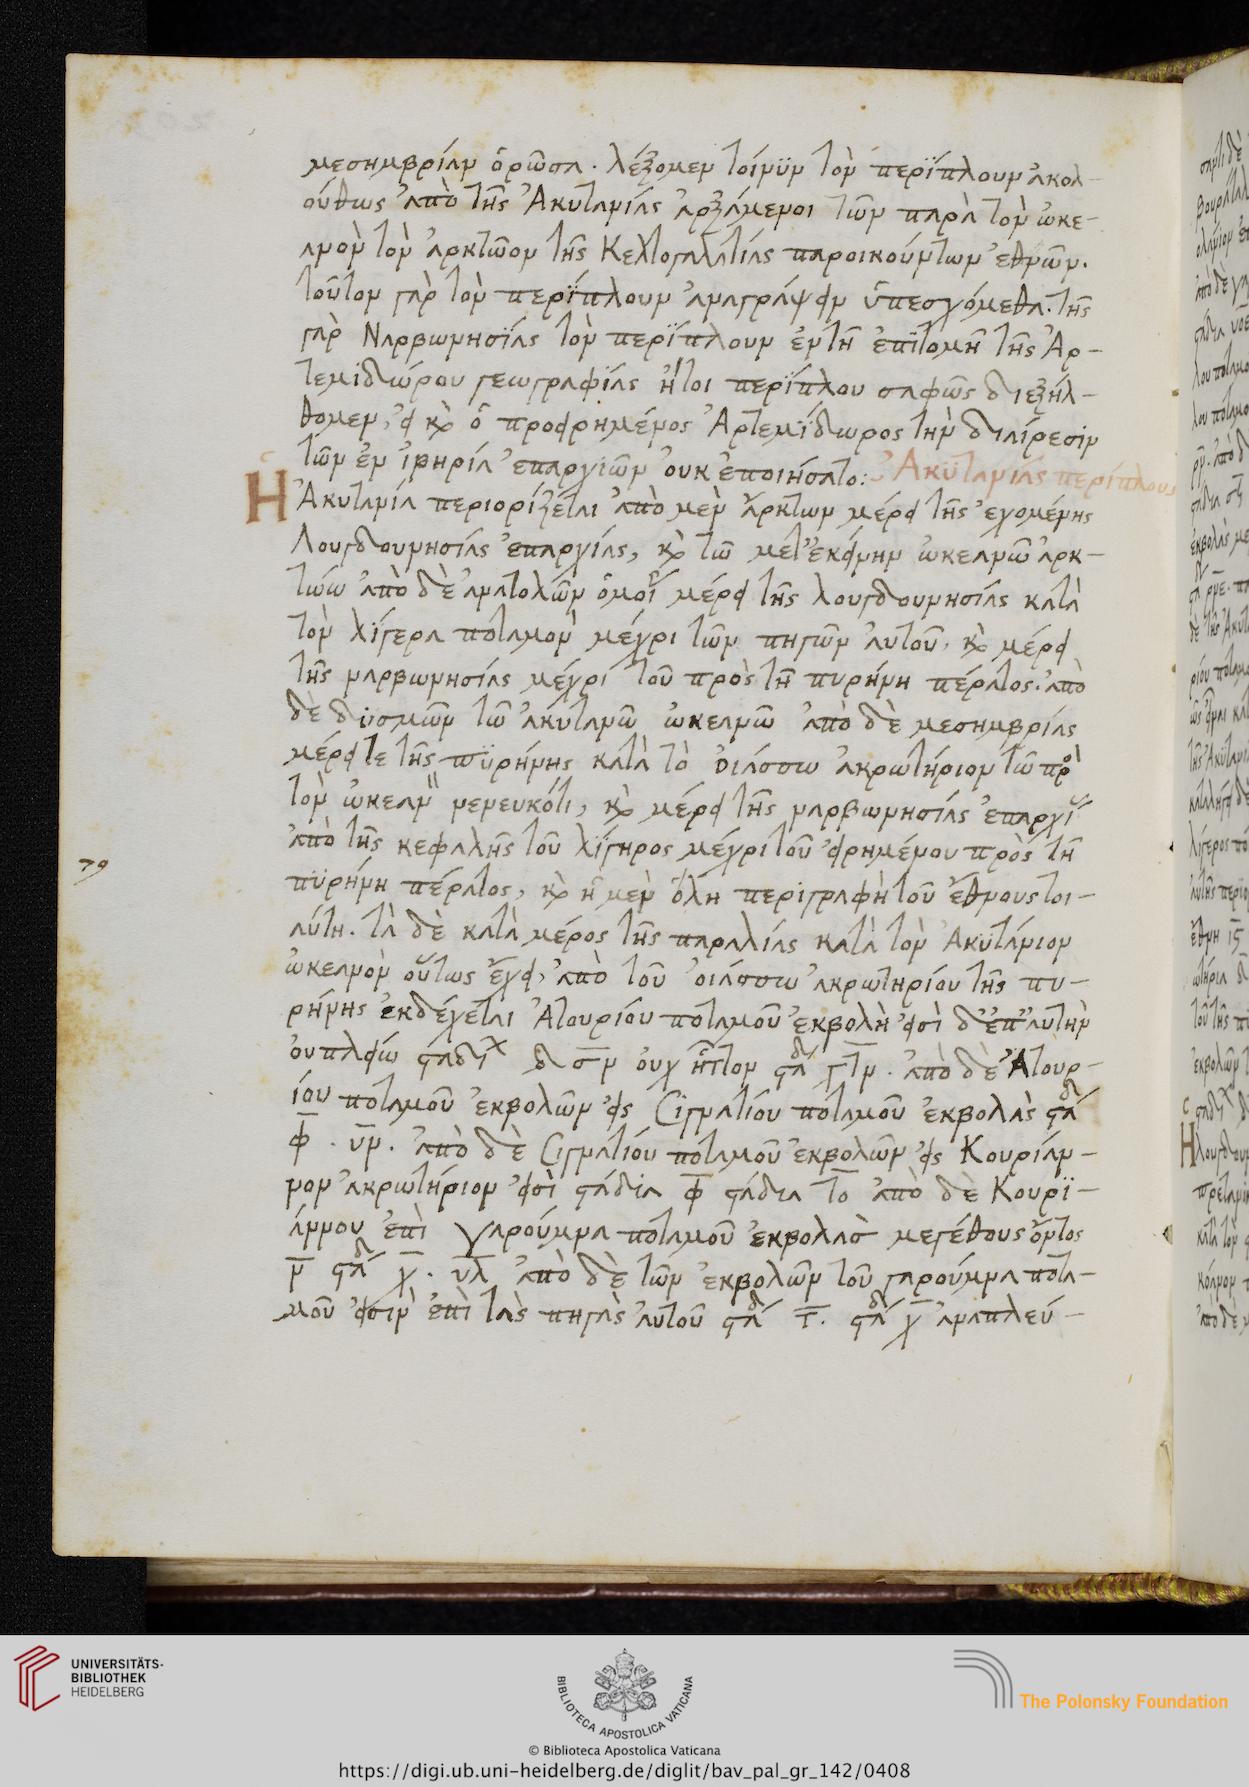 μεσημβρίαν ὁρῶσα. λέξομεν τοίνϋν τὸν περίπλουν ἀκολ-
ούθως ἀπὸ τῆς Ἀκυτανίας ἀρξάμενοι τῶν παρὰ τὸν ὠκε-
ανὸν τὸν ἀρκτῶον τῆς Κελτογαλατίας παροικούντων ἐθνῶν.
τοῦτον γὰρ τὸν περίπλουν ἀναγράψειν ὑπεσχόμεθα. τῆς
γὰρ Ναρβωνησίας τὸν περίπλουν ἐν τῆ ἐπιτομῆ τῆς Ἀρ-
τεμιδώρου γεωγραφίας ἤτοι περίπλου σαφῶς διεξήλ-
θομεν, εἰ καὶ ὁ προειρημένος Ἀρτεμίδωρος τὴν διαίρεσιν
τῶν ἐν ἰβηρία ἐπαρχιῶν οὐκ ἐποιήσατο: Ἀκϋτανίας περίπλους
Ἡ Ἀκυτανία περιορίζεται ἀπὸ μὲν ἄρκτων μέρει τῆς ἐχομένης
Λουγδουνησίας ἐπαρχίας, καὶ τῶ μετ' ἐκείνην ὠκεανῶ ἀρκ-
τώω ἀπὸ δὲ ἀνατολῶν ὁμοί μέρει τῆς λουγδουνησίας κατὰ
τὸν λίγερα ποταμὸν μέχρι τῶν πηγῶν αὐτοῦ, καὶ μέρει
τῆς ναρβωνησίας μέχρι τοῦ πρὸς τῆ πυρήνη πέρατος. ἀπὸ
δὲ δϋσμῶν τῶ ἀκυτανῶ ὠκεανῶ ἀπὸ δὲ μεσημβρίας
μέρει τε τῆς πϋρήνης κατὰ τὸ οἰάσσω ἀκρωτήριον τῶ πρὸ
τὸν ὠκεαν νενευκότι, καὶ μέρει τῆς ναρβωνησίας ἐπαρχί
ἀπὸ τῆς κεφαλῆς τοῦ λίγηρος μέχρι τοῦ εἰρημένου πρὸς τῆ
79
πϋρήνη πέρατος, καὶ ἡ μὲν ὅλη περιγραφὴ τοῦ ἔθνους τοι-
αύτη. τὰ δὲ κατὰ μέρος τῆς παραλίας κατὰ τὸν Ἀκϋτάνιον
ὠκεανὸν οὕτως ἔχει, ἀπὸ τοῦ οἰάσσω ἀκρωτηρίου τῆς πυ-
ρήνης ἐκδέχεται Ἀτουρίου ποταμοῦ ἐκβολὴ εἰσὶ δ' ἐπ' αὐτὴν
οὐ πλείω σταδι ͵α σν οὐχ ἧττον στάδ
ίου ποταμοῦ ἐκβολῶν εἰς Σιγνατίου ποταμοῦ ἐκβολὰς στάδ
φ. υν. ἀπὸ δὲ Σιγνατίου ποταμοῦ ἐκβολῶν εἰς Κουριάν-
νον ἀκρωτήριον εἰσὶ στάδια φ στάδια το ἀπὸ δὲ Κουρϊ-
άννου ἐπὶ γαρούννα ποταμοῦ ἐκβολὰσ μεγέθους ὄντος
ν στάδ χ. υλ ἀπὸ δὲ τῶν ἐκβολῶν τοῦ γαρούννα ποτα-
μοῦ εἰσὶν ἐπὶ τὰς πηγὰς αὐτοῦ στάδ στάδ χ ἀναπλεύ-
UNIVERSITÄTS-
BIBLIOTHEK
HEIDELBERG
BIBLIOTECA APOSTOLICA VATICANA
The Polonsky Foundation
© Biblioteca Apostolica Vaticana
https://digi.ub.uni-heidelberg.de/diglit/bav_pal_gr_142/0408